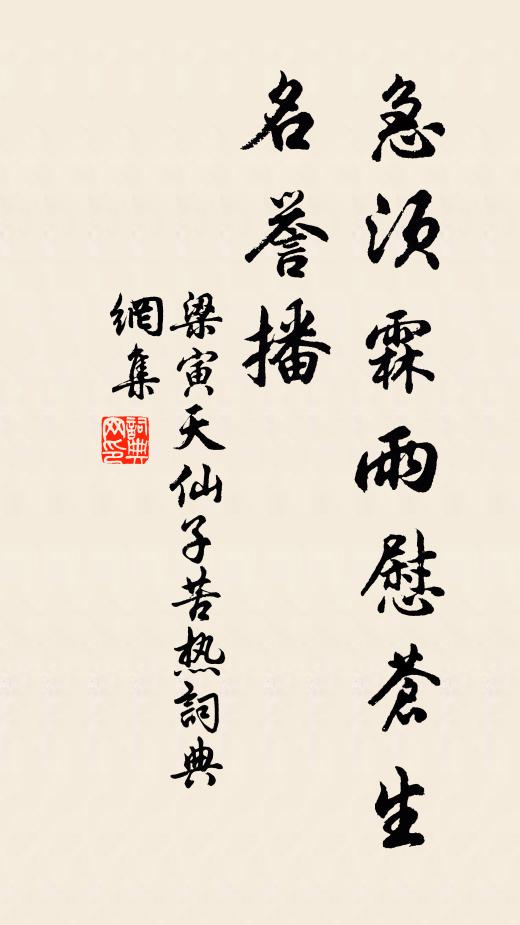 急须霖雨慰苍生
名誉播
梁寅天仙子苦热詞典
網集
詞典网印